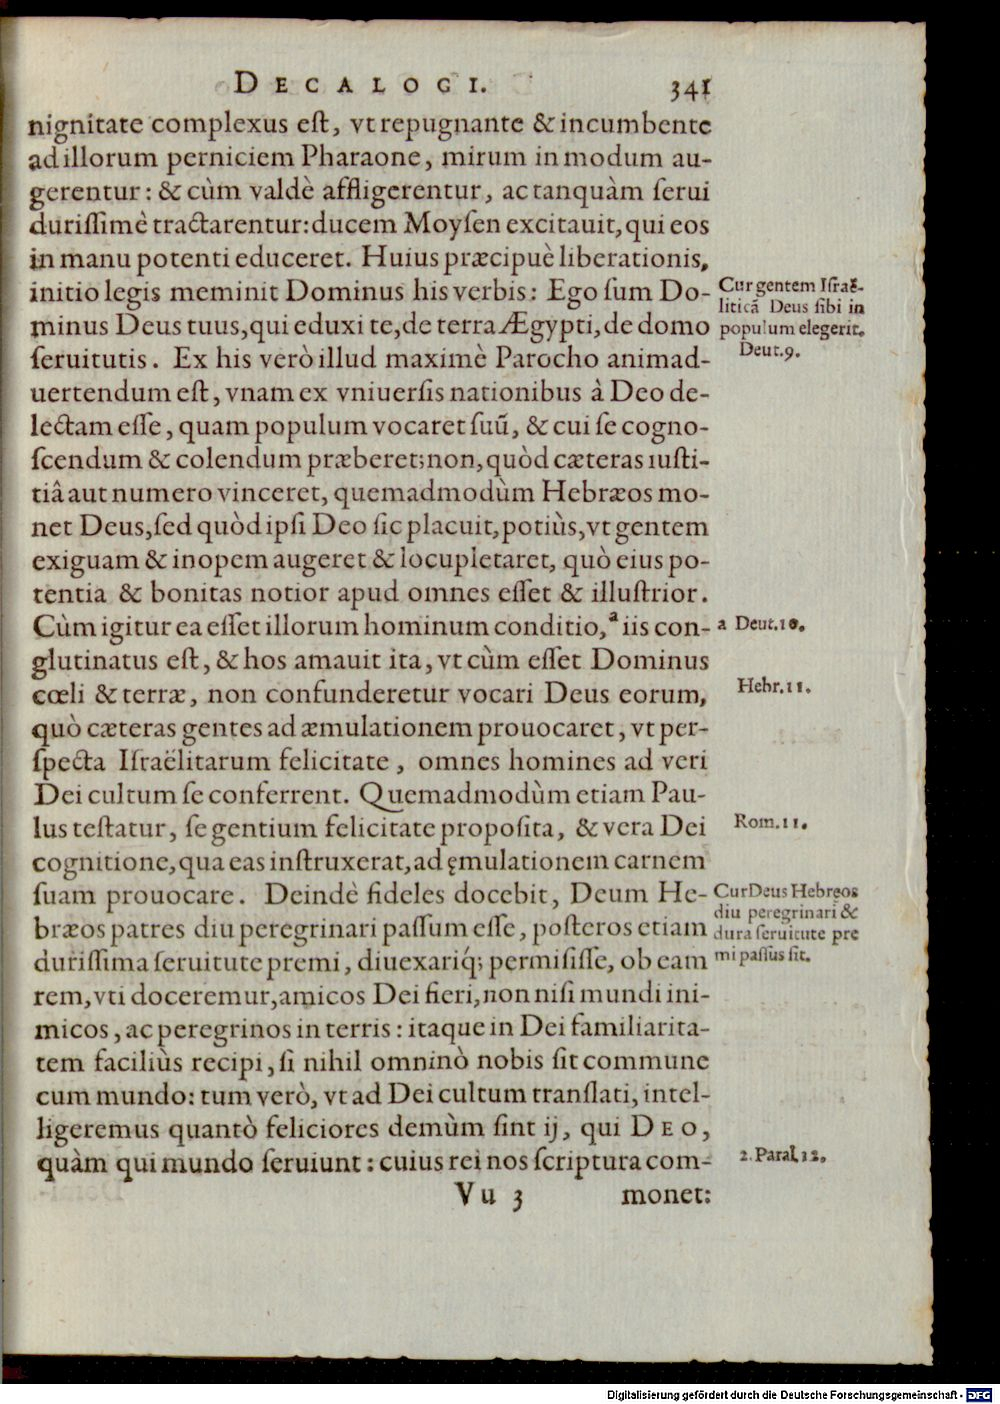 DECALOGI. 341
nignitate complexus eſt, vt repugnante & incumbente
ad illorum perniciem Pharaone, mirum in modum au-
gerentur: & cùm valdè affligerentur, ac tanquàm ſerui
duriſſimè tractarentur: ducem Moyſen excitauit, qui eos
in manu potenti educeret. Huius præcipuè liberationis,
initio legis meminit Dominus his verbis: Ego ſum Do-
minus Deus tuus, qui eduxi te, de terra Ægypti, de domo
ſeruitutis. Ex his verò illud maximè Parocho animad-
uertendum eſt, vnam ex vniuerſis nationibus â Deo de-
lectam eſſe, quam populum vocaret ſuũ, & cui ſe cogno-
ſcendum & colendum præberet; non, quòd cæteras iuſti-
tiâ aut numero vinceret, quemadmodùm Hebræos mo-
net Deus, ſed quòd ipſi Deo ſic placuit, potiùs, vt gentem
exiguam & inopem augeret & locupletaret, quò eius po-
tentia & bonitas notior apud omnes eſſet & illuſtrior.
Cùm igitur ea eſſet illorum hominum conditio, ª iis con-
glutinatus eſt, & hos amauit ita, vt cùm eſſet Dominus
cœli & terræ, non confunderetur vocari Deus eorum,
quò cæteras gentes ad æmulationem prouocaret, vt per-
ſpecta Iſraëlitarum felicitate, omnes homines ad veri
Dei cultum ſe conferrent. Quemadmodùm etiam Pau-
lus teſtatur, ſe gentium felicitate propoſita, & vera Dei
cognitione, qua eas inſtruxerat, ad ęmulationem carnem
ſuam prouocare. Deindè fideles docebit, Deum He-
bræos patres diu peregrinari paſſum eſſe, poſteros etiam
duriſſima ſeruitute premi, diuexariq́; permiſiſſe, ob eam
rem, vti doceremur, amicos Dei fieri, non niſi mundi ini-
micos, ac peregrinos in terris: itaque in Dei familiarita-
tem faciliùs recipi, ſi nihil omninò nobis ſit commune
cum mundo: tum verò, vt ad Dei cultum tranſlati, intel-
ligeremus quantò feliciores demùm ſint ij, qui DEO,
quàm qui mundo ſeruiunt: cuius rei nos ſcriptura com-
Vu 3 monet:
Cur gentem Iſraë-
liticã Deus ſibi in
populum elegerit.
Deut. 9.
a Deut. 10.
Hebr. 11.
Rom. 11.
Cur Deus Hebręos
diu peregrinari &
dura ſeruitute pre
mi paſſus ſit.
2. Paral. 12.
Digitalisierung gefördert durch die Deutsche Forschungsgemeinschaft - DFG